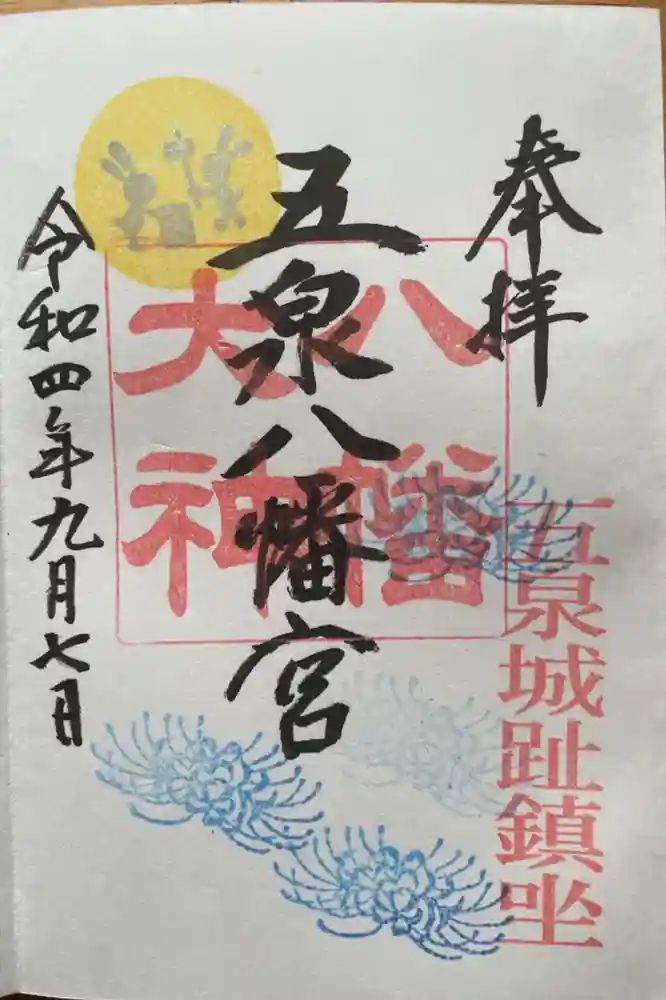 奉拝
五泉城趾鎮坐
五泉八幡宮
八幡
大神
令和四年九月七日